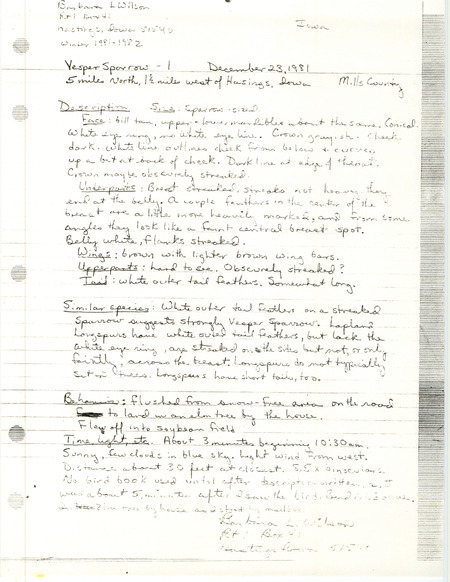 Barbara L Wilson
Rt 1 Box 41
Hastings, Iowa 51540
Winter 1981-1982
Iowa
Vesper Sparrow - 1 December 23, 1981
5 miles North, 1½ miles west of Hasings, Iowa Mills County
Description Size: Sparrow-sized.
Face: bill tan, upper + lower mandibles about the same. Conical.
White eye ring, no white eye line. Crown grayish. Cheek
dark. White line outlines cheek from below + curves
up a bit at back of cheek. Dark line at edge of throat.
Crown maybe obscurely streaked.
Underparts: Breast streaked, streaks not heavy, they
end at the belly. A couple feathers in the center of the
breast are a little more heavily marked, and from some
angles they look like a faint central breast spot.
Belly white, flanks streaked.
Wings: brown with lighter brown wing bars.
Upperparts: hard to see. Obscurely streaked?
Tail: white outer tail feathers. Somewhat long.
Similar species: White outer tail feathers on a streaked
Sparrow suggests strongly Vesper Sparrow. Lapland
Longspurs have white outer tail feathers, but lack the
white eye ring, are streaked on the sides but not, or only
faintly, across the breast, Longspurs do not typically
set in trees. Longspurs have short tails, too.
Behavior: flushed from snow-free area on the road
to land in an elm tree by the house.
Flew off into soybean field
Time, light, etc. About 3 minutes beginning 10:30 am.
Sunny, few clouds in blue sky. Light wind from west.
Distance about 30 feet at closest. 8.5x binoculars.
No bird book used until after description written,
was about 5 minutes after I saw the bird.
tree by house and stood by
Barbara L. Wilson
Rt 1 Box 41
Hastings Iowa